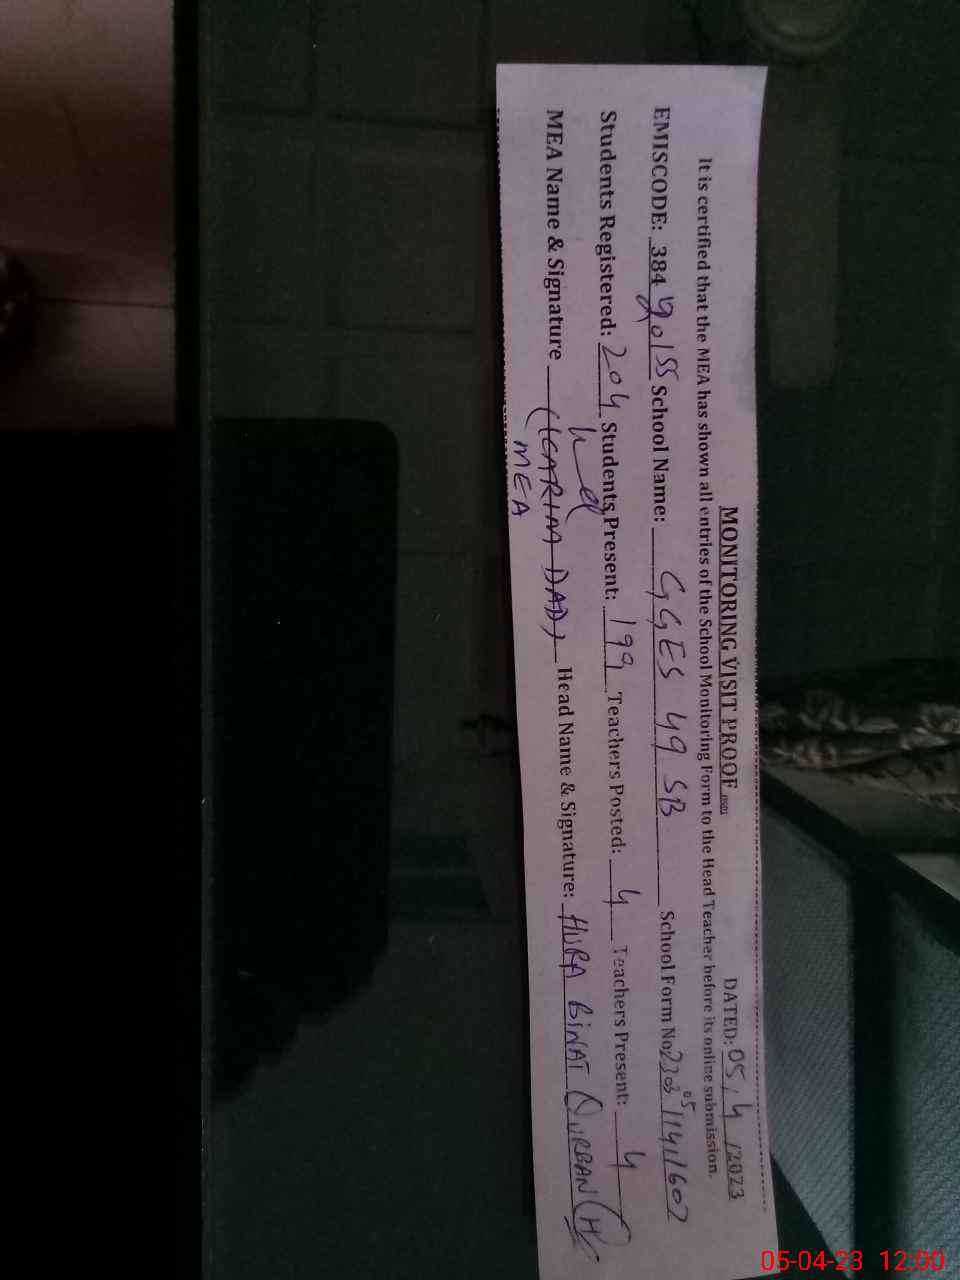 MONITORING VISIT PROOF DATED: 05/4/2023
It is certified that the MEA has shown all entries of the School Monitoring Form to the Head Teacher before its online submission.
EMISCODE: 384 School Name: GGES 49 SB School Form No
Students Registered: 204 Students Present: 199 Teachers Posted: 4 Teachers Present: 4
MEA Name & Signature (KARIM DAD) Head Name & Signature: HURA BINAT QURBAN
MEA
05-04-23 12:00